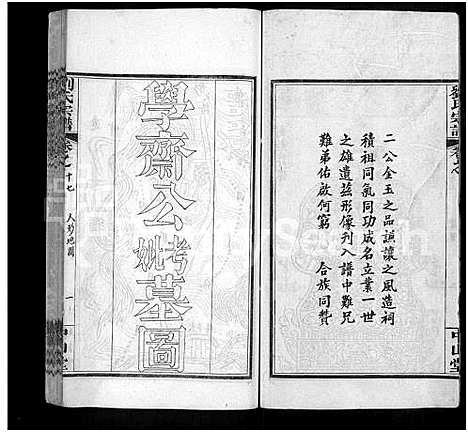 劉氏宗譜
二公金玉之品謙讓之風造祠
積祖同氣同功成名立業一世
之雄遺茲形像刋入譜中難兄
難弟佑啟何窮　合族同贊
中山堂
學齋公考妣墓圖
劉氏宗譜
卷之十七
人珍地圖
一
中山堂